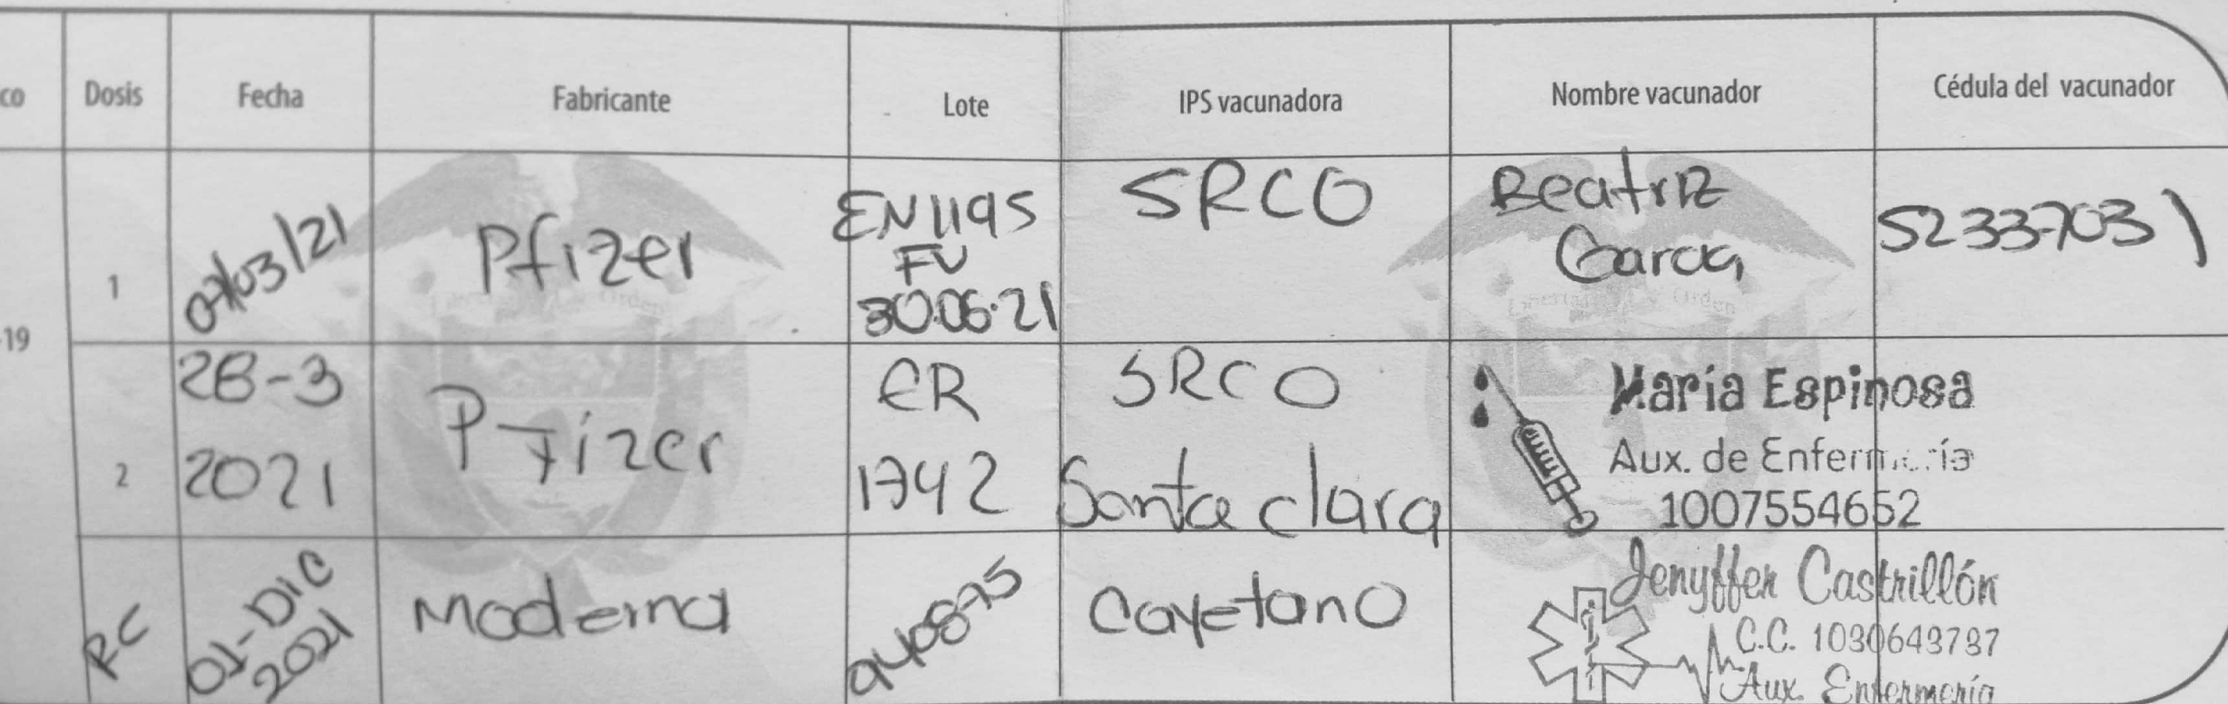 co Dosis Fecha Fabricante Lote IPS vacunadora Nombre vacunador Cédula del vacunador
-19
1 07/03/21 Pfizer EN1195 FV 30.06.21 SRCO Beatriz Garcia 52337031
2 28-3 2021 Pfizer ER 1742 SRCO Santa clara María Espinosa
Aux. de Enfermería
1007554652
RC 01-DIC 2021 Moderna 940875 Cayetano Jenyffer Castrillón
C.C. 1030643737
Aux. Enfermería